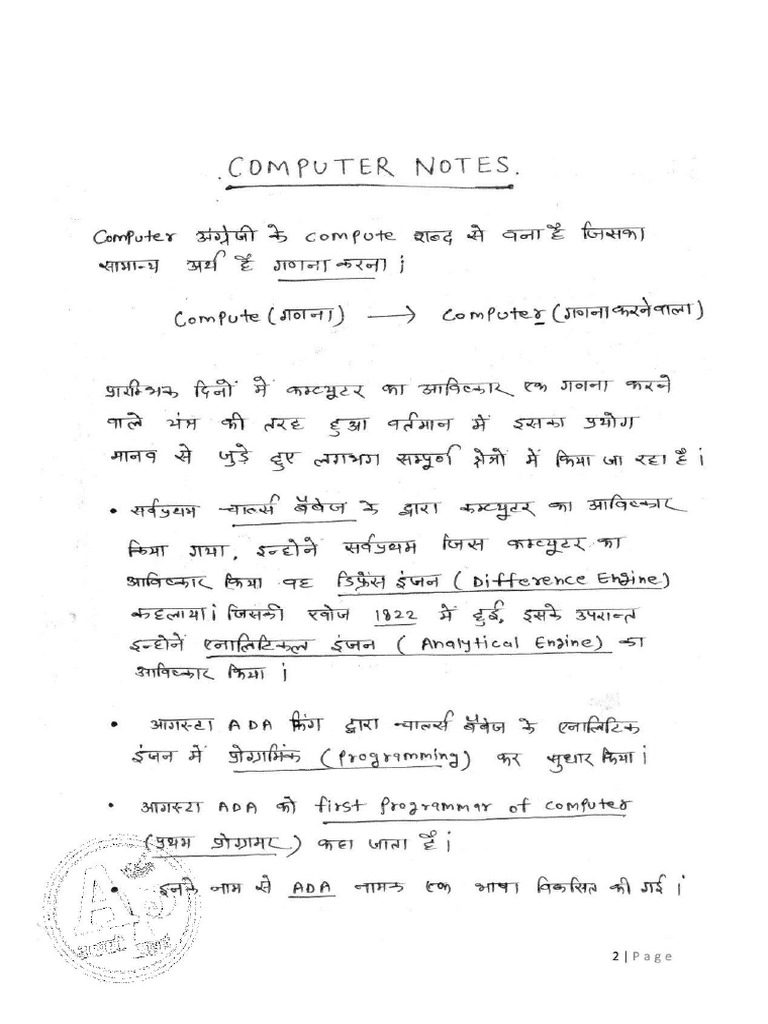 COMPUTER NOTES.
Computer अंग्रेजी के compute शब्द से बना है जिसका
सामान्य अर्थ है गणना करना ।
Compute (गणना) → Computer (गणना करने वाला)
प्रारम्भिक दिनों में कम्प्यूटर का आविष्कार एक गणना करने
वाले यंत्र की तरह हुआ वर्तमान में इसका प्रयोग
मानव से जुड़े हुए लगभग सम्पूर्ण क्षेत्रों में किया जा रहा है ।
• सर्वप्रथम चार्ल्स बैबेज के द्वारा कम्प्यूटर का आविष्कार
किया गया, इन्होने सर्वप्रथम जिस कम्प्यूटर का
आविष्कार किया वह डिफ्रेंस इंजन ( Difference Engine)
कहलाया। जिसकी खोज 1822 में हुई, इसके उपरान्त
इन्होने एनालिटिकल इंजन ( Analytical Engine) का
आविष्कार किया ।
• आगस्टा ADA किंग द्वारा चार्ल्स बैबेज के एनालिटिक
इंजन में प्रोग्रामिंक (Programming) कर सुधार किया।
• आगस्टा ADA को first Programmar of computer
(प्रथम प्रोग्रामर) कहा जाता है ।
• इनके नाम से ADA नामक एक भाषा विकसित की गई ।
2 | Page